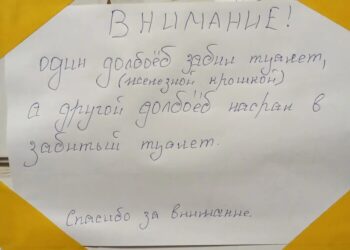 ВНИМАНИЕ!
один долбоёб забил туалет,
(железной крошкой)
а другой долбоёб насрал в
забитый туалет.
Спасибо за внимание.